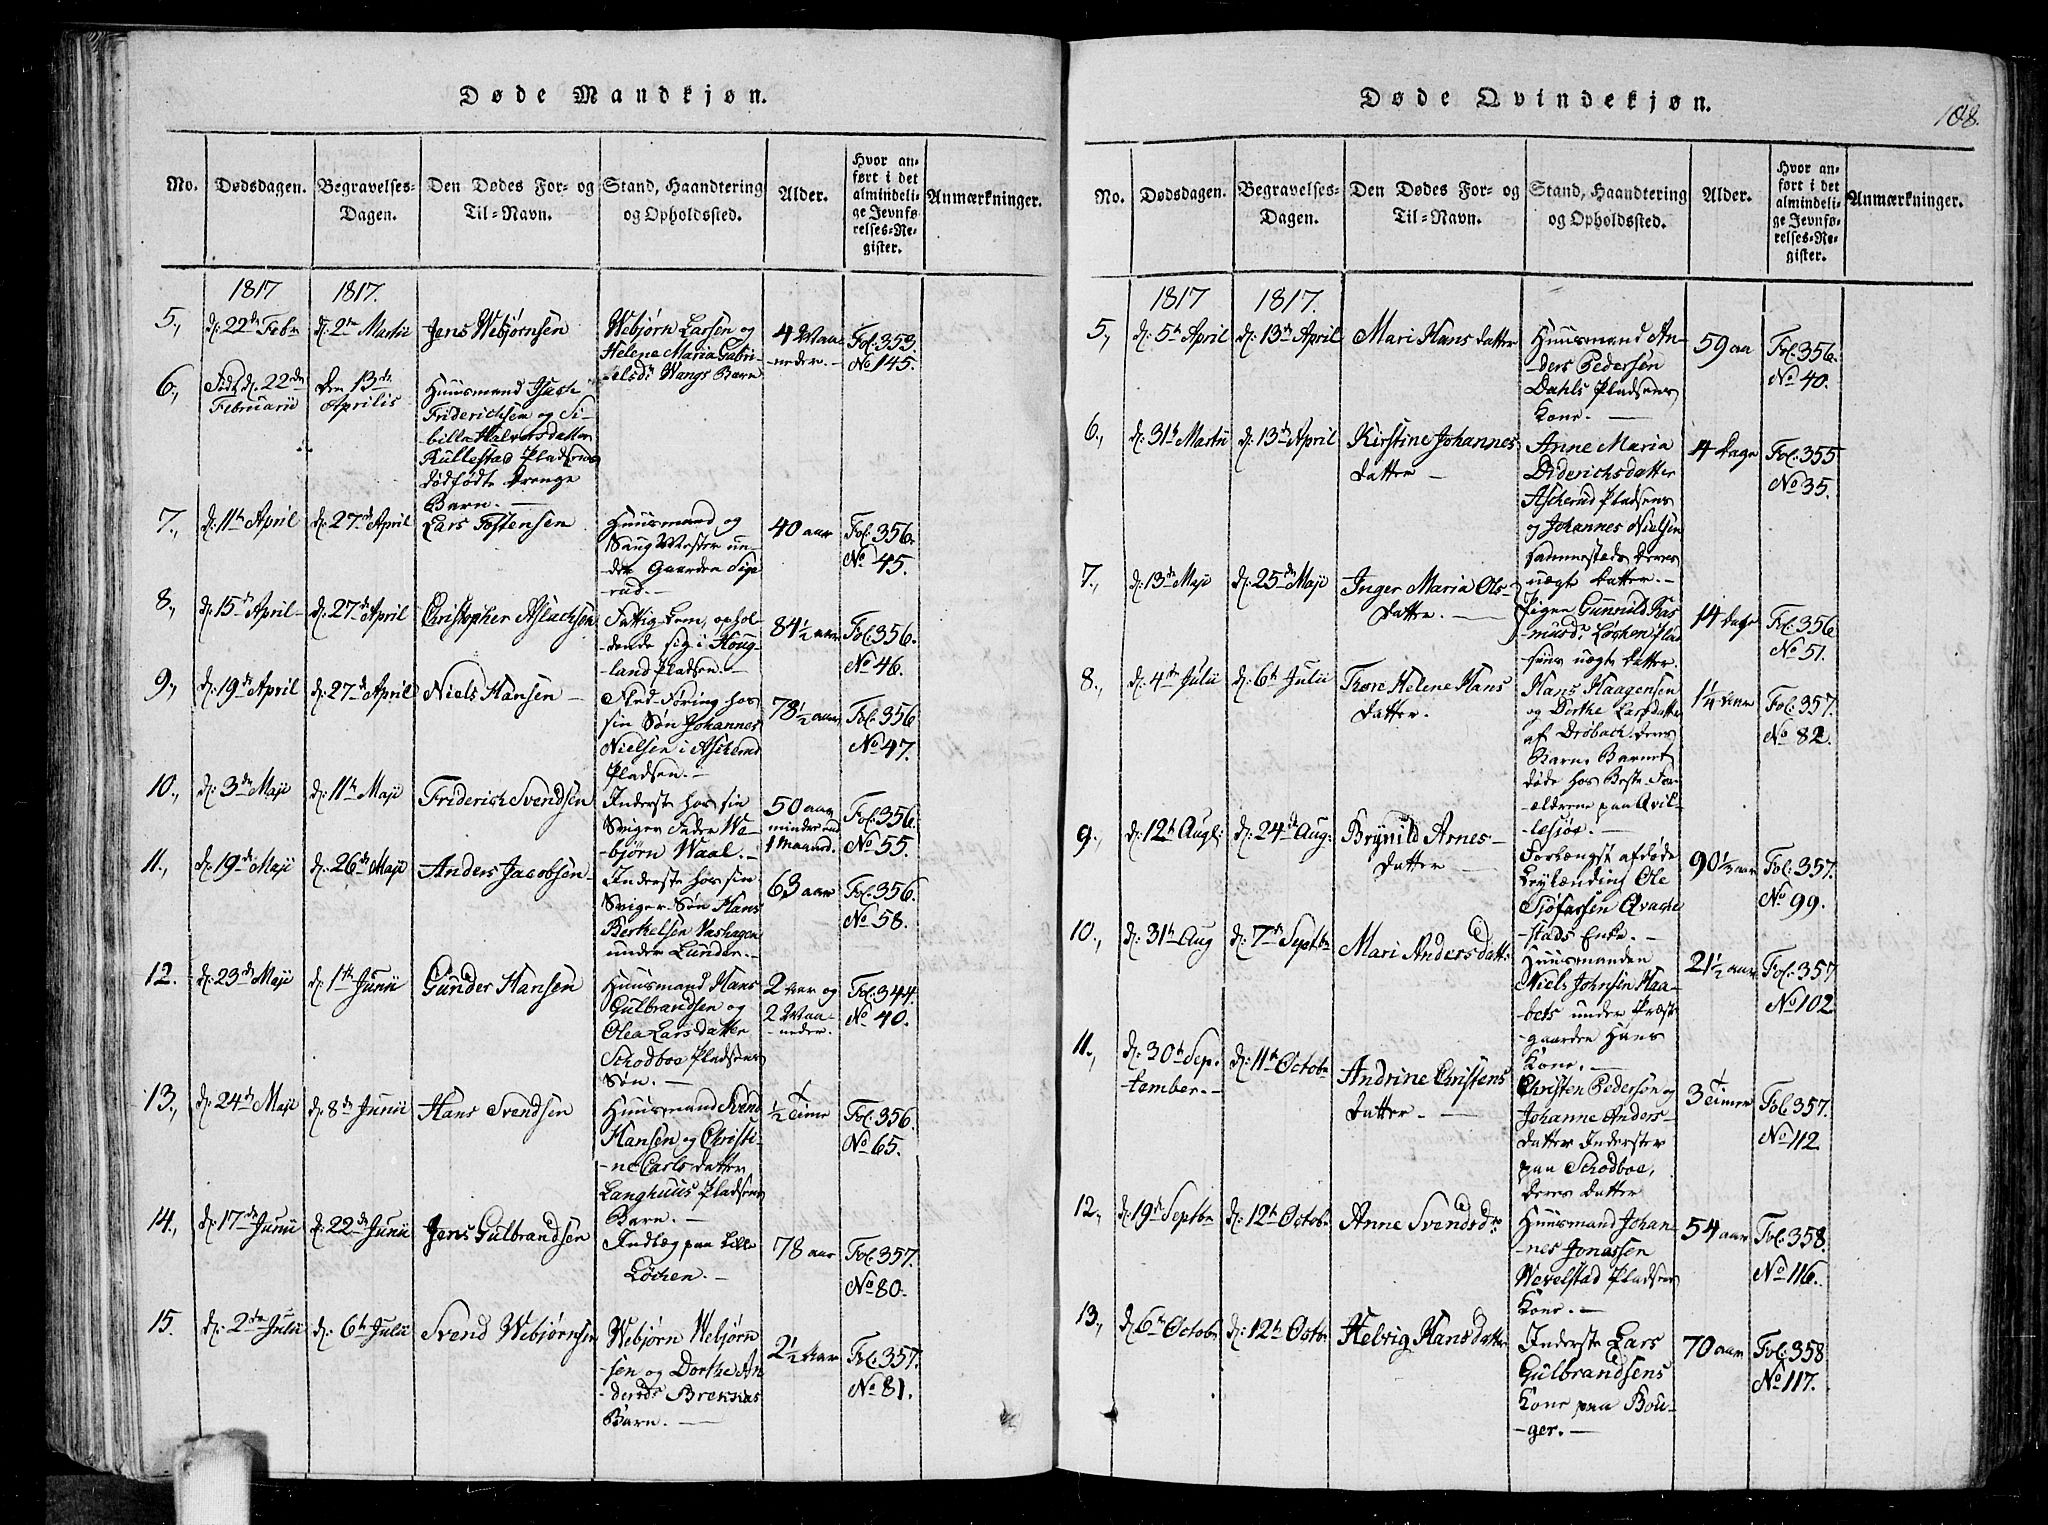 Døde Mandkjøn.
No.
Dødsdagen.
Begravelses-
Dagen.
Den Dødes For- og
Til-Navn.
Stand, Haandtering
og Opholdssted.
Alder.
Hvor an-
ført i det
almindeli-
ge Jevnfø-
relses-Re-
gister.
Anmærkninger.
1817
1817.
5.,
d: 22de Febr
d: 2den Martii
Jens Webjørnsen
Webjørn Larsen og
Helene Maria Gabri-
elsd: Wangs Barn
4 Maa-
neder.-
Fol: 353.
No 145.
6.,
Født d: 22de
Februarii
den 13de
Aprilis
Huusmand Isach
Friderichsen og Si-
bille Halvorsdatter
Kullestad Pladsens
dødfødte Drenge
Barn.-
7.,
d: 11te April
d: 27de April
Lars Tostensen
Huusmand og
Saug Mester un-
der Gaarden Sige-
rud.-
40 aar
Fol: 356.
No 45.
8.,
d: 15de April
d: 27de April
Christopher Aslachsen
Fattig-Lem, ophol-
dende sig i Houg-
land Pladsen.-
84½ aar
Fol: 356.
No 46.
9.,
d: 19de April
d: 27de April
Niels Hansen -
Fled-Føring hos
sin Søn Johannes
Nielsen i Ascherud
Pladsen.-
78½ aar
Fol: 356
No 47.
10.,
d: 3de Maji
d: 11te Maji
Friderich Svendsen
Inderste hos sin
Sviger Fader We-
bjørn Waal.-
50 aar
mindre end
1 Maaned.
Fol: 356.
No 55.
11.,
d: 19de Maji
d: 26de Maji
Anders Jacobsen
Inderste hos sin
Sviger-Søn Hans
Berthelsen Vashagen
under Lunder.-
63 aar
Fol: 356.
No 58.
12.
d: 23de Maji
d: 1ste Junii
Gunder Hansen
Huusmand Hans
Gulbrandsen og
Olea Larsdatter
Schodboe Pladsens
Søn.-
2 aar og
2 Maa-
neder.
Fol: 344.
No 40.
13.,
d: 24de Maji
d: 8de Junii
Hans Svendsen
Huusmand Svend
Hansen og Christi-
-ne Carlsdatter
Langhuus Pladsens
Barn.-
½ Time
Fol: 356.
No 65.
14.,
d: 17de Junii
d: 22de Junii
Jens Gulbrandsen
Indlæg paa Lille
Løchen.-
78 aar
Fol: 357.
No 80.
15.
d: 2den Julii
d: 6te Julii
Svend Webjørnsen
Webjørn Webjørn
sen og Dorthe An-
dersd: Breknas
Barn.-
2½ Aar
Fol: 357.
No 81.
Døde Qvindekjøn.
108.
No.
Dødsdagen.
Begravelses-
Dagen.
Den Dødes For- og
Til-Navn.
Stand, Haandtering
og Opholdssted.
Alder.
Hvor an-
ført i det
almindeli-
ge Jevnfø-
relses-Re-
gister.
Anmærkninger.
1817
1817.
5.,
d: 5te April
d: 13de April
Mari Hans datter
Huusmand An-
ders Pedersen
Dahls Pladsens
Kone.-
59 aar
Fol: 356.
No 40.
6.,
d: 31te Martii
d: 13de April
Kirstine Johannes
datter -
Anne Maria
Diderichsdatter
Ascherud Pladsens
og Johannes Nielsen
Sammesteds deres
uægte datter.-
4 Dage
Fol: 355
No 35.
7.,
d: 13de Maji
d: 25de Maji
Inger Maria Ols-
datter.-
Pigen Gunnild Ras
-musd: Løchen Plad
sens uægte datter.
14 dage
Fol: 356
No 51.
8.,
d: 4de Julii
d: 6te Julii
Thore Helene Hans
datter.
Hans Haagensen
og Dorthe Larsdatter
af Drøbach deres
Barn. Barnet
døde hos Beste For-
-ældrene paa Qvil-
lesjøe.-
1¼ Aar
Fol: 357.
No 82.
9.,
d: 12te Aug:
d: 24de Aug:
Brynild Arnes-
datter -
Forlængst afdøde
Leylænding Ole
Tjøfassen Qvache
-stads Enke.-
90½ aar
Fol: 357.
No 99.
10.,
d: 31te Aug
d: 7de Septbr
Mari Andersdatt:
Huusmanden
Niels Johnsen Haa-
bets under Præst-
gaarden Hans
Kone.-
21½ aar
Fol: 357
No 102.
11.,
d: 30te Sep-
tember.-
d: 11te Octobr
Andrine Christens
datter.-
Christen Pederson og
Johanne Anders-
datter Inderster
paa Schodboe,
deres datter
3 Timer
Fol: 357.
No 112
12.,
d: 19de Septbr
d: 12te Octobr
Anne Svendsdr
Huusmand Johan-
-nes Jonassen
Wevelstad Pladsens
Kone.-
54 aar
Fol: 358.
No 116.
13.,
d: 6te Octobr
d: 12te Octbr
Helvig Hansdatter
Inderste Lars
Gulbrandsens
Kone paa Bou-
-ger.-
70 aar
Fol: 358
No 117.